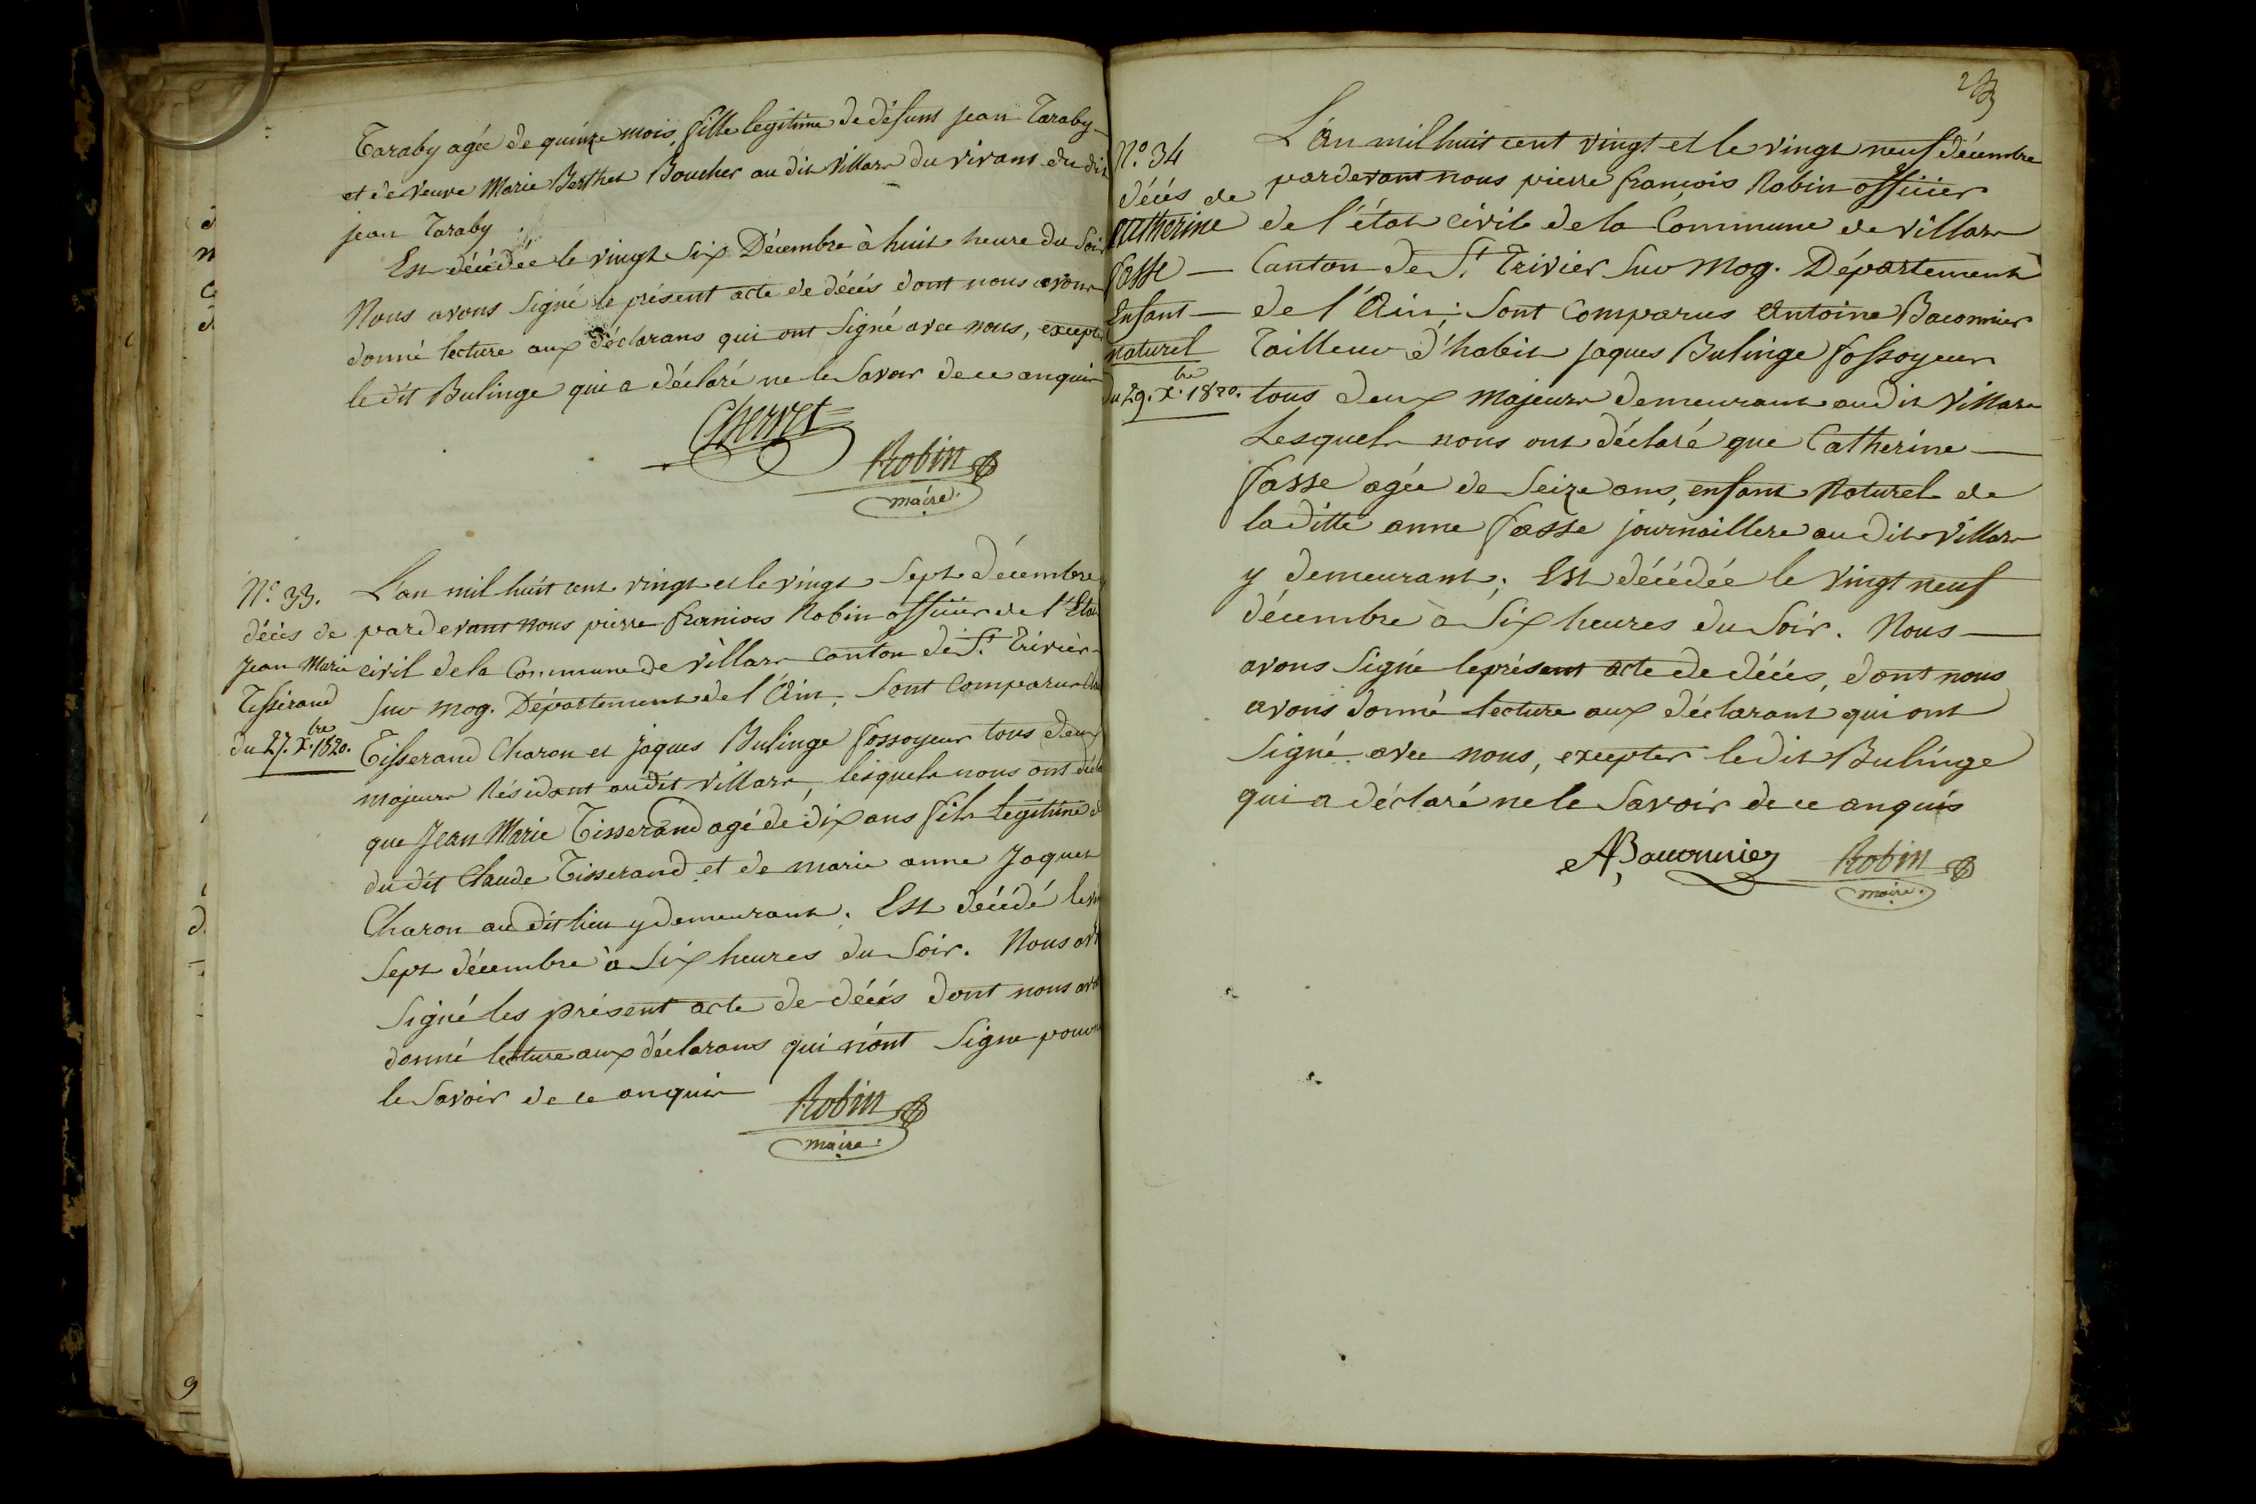 Taraby agée de quinze mois, fille legitime de défunt jean Taraby
et de veuve Marie Berthet Boucher au dit Villars du vivant du dit
jean Taraby.
Est décédée le vingt six Décembre à huit heure du Soir
Nous avons Signé le présent acte de décés dont nous avons
donné lecture aux déclarans qui ont Signé avec nous, excepté
le dit Bulinge qui a déclaré ne le Savoir de ce anquis
Chervet
Robin
maire.
N.º 33.
décés de
Jean Marie
Tisserand
du 27. X.bre 1820.
L'an mil huit cent vingt et le vingt Sept décembre
pardevant nous pierre francois Robin officier de l'Etat
civil de la Commune de Villars canton de St. Trivier
Sur Mog. Département de l'Ain, Sont Comparus
Tisserand Charon et jaques Bulinge fossoyeur tous deux
majeurs Résidant audit Villars, lesquels nous ont
que Jean Marie Tisserand agé de dix ans fils legitime
du dit Claude Tisserand et de marie anne Jaquet
Charon au dit lieu y demeurant. Est décédé le
Sept décembre à Six heures du Soir. Nous
Signé les présent acte de décés dont nous
donné lecture aux déclarans qui n'ont Signe pour
le Savoir de ce anquis
Robin
maire.
N.º 34
décés de
Catherine
fasse
Enfant
naturel
du 29. X.bre 1820.
L'An mil huit cent vingt et le vingt neuf décembre
pardevant nous pierre françois Robin officier
de l'état civile de la Commune de Villars
Canton de St. Trivier Sur Mog. Département
de l'Ain; Sont Comparus Antoine Baconnier
Tailleur d'habit jaques Bulinge fossoyeur
tous deux Majeurs demeurant au dit Villars
Lesquels nous ont déclaré que Catherine
fasse agée de Seize ans, enfant Naturel de
la ditte anne fasse journaillere au dit Villars
y demeurant; Est décédée le Vingt neuf
décembre à Six heures du Soir. Nous
avons Signé le présent acte de décés, dont nous
avons donné lecture aux déclarant qui ont
Signé avec nous, excepter le dit Bulinge
qui a déclaré ne le Savoir de ce anquis
ABaconnier
Robin
maire.